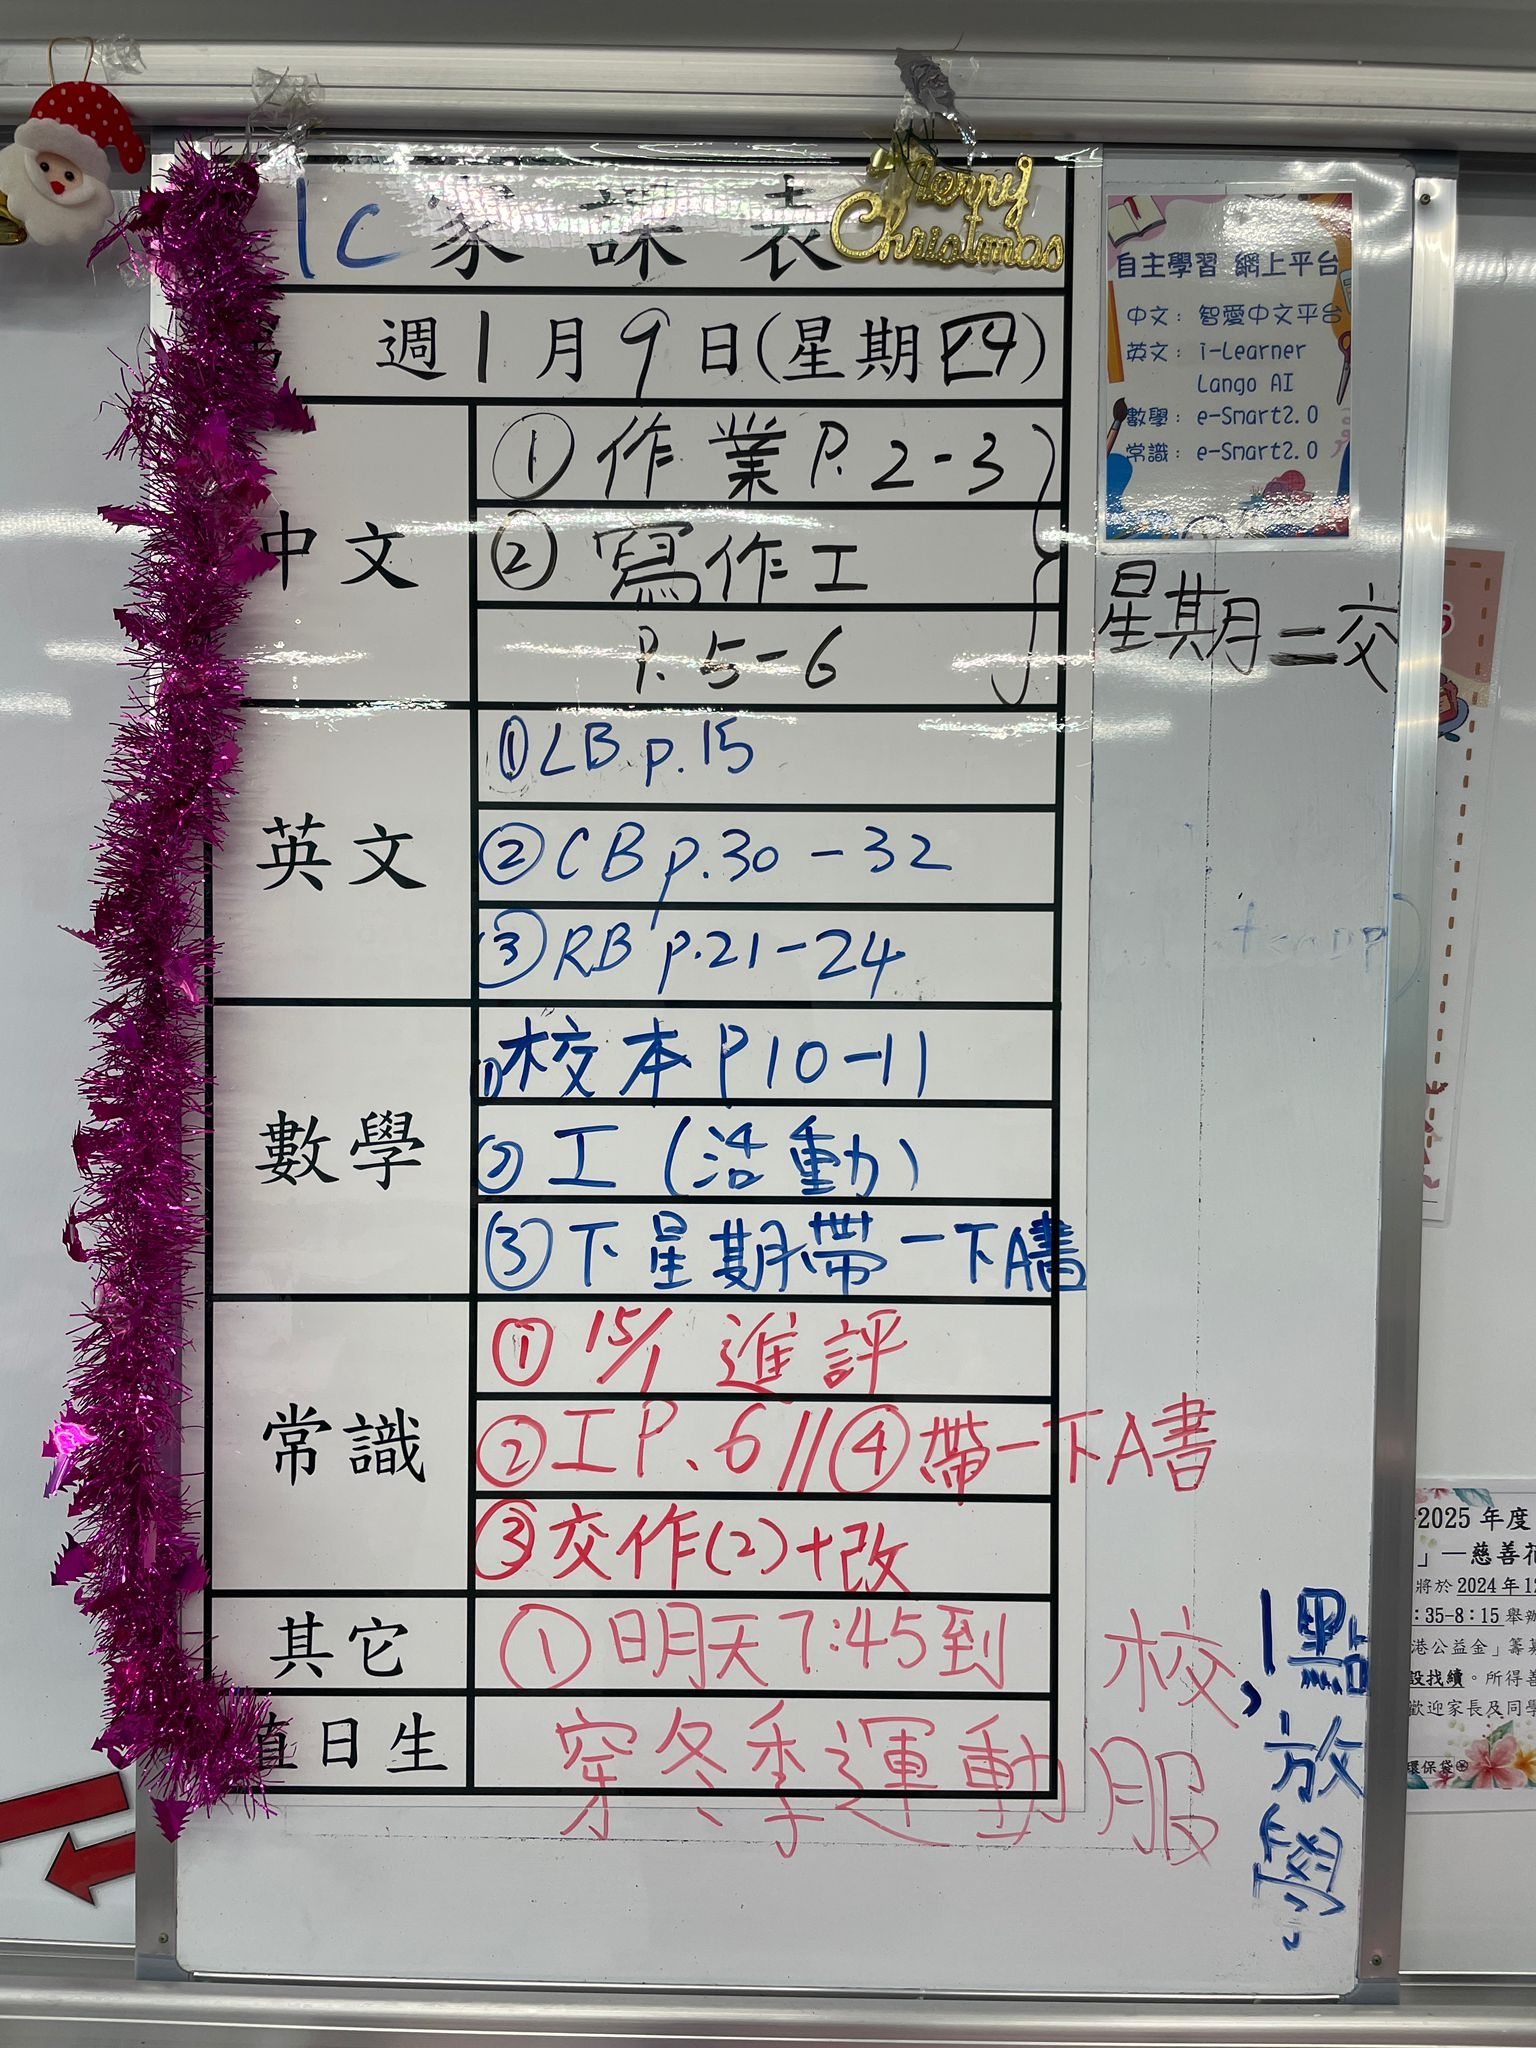 1C家課表
Merry Christmas
週1月9日(星期四)
中文
①作業P.2-3
②寫作工
P.5-6
星期二交
英文
①LB p.15
②CB p.30-32
③RB p.21-24
數學
①校本P10-11
②工(活動)
③下星期帶一下A書
常識
①15/1進評
②工P.6//④帶一下A書
③交作(2)+改
其它
①明天7:45到校,
穿冬季運動服
1點放學。
直日生
自主學習 網上平台
中文: 智愛中文平台
英文: i-Learner
Lango AI
數學: e-Smart2.0
常識: e-Smart2.0
2025 年度
」—慈善花
將於 2024 年 12
:35-8:15 舉辦
港公益金」籌募
設找續。所得善
歡迎家長及同學
環保袋